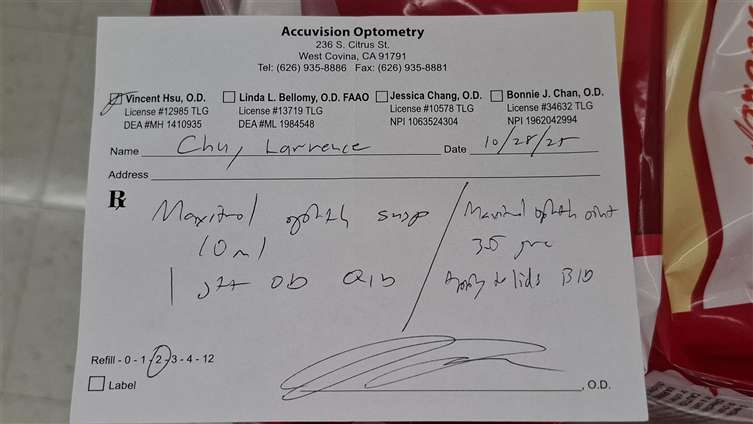 Accuvision Optometry
236 S. Citrus St.
West Covina, CA 91791
Tel: (626) 935-8886 Fax: (626) 935-8881
Vincent Hsu, O.D.
License #12985 TLG
DEA #MH 1410935
Linda L. Bellomy, O.D. FAAO
License #13719 TLG
DEA #ML 1984548
Jessica Chang, O.D.
License #10578 TLG
NPI 1063524304
Bonnie J. Chan, O.D.
License #34632 TLG
NPI 1962042994
Name Chu, Lawrence Date 10/28/25
Address
Rx
Maxitrol ophth susp
10 ml
1 gtt QID
Maxitrol ophth oint
3.5 gm
Apply to lids BID
Refill - 0 - 1 - 2 - 3 - 4 - 12
Label
, O.D.